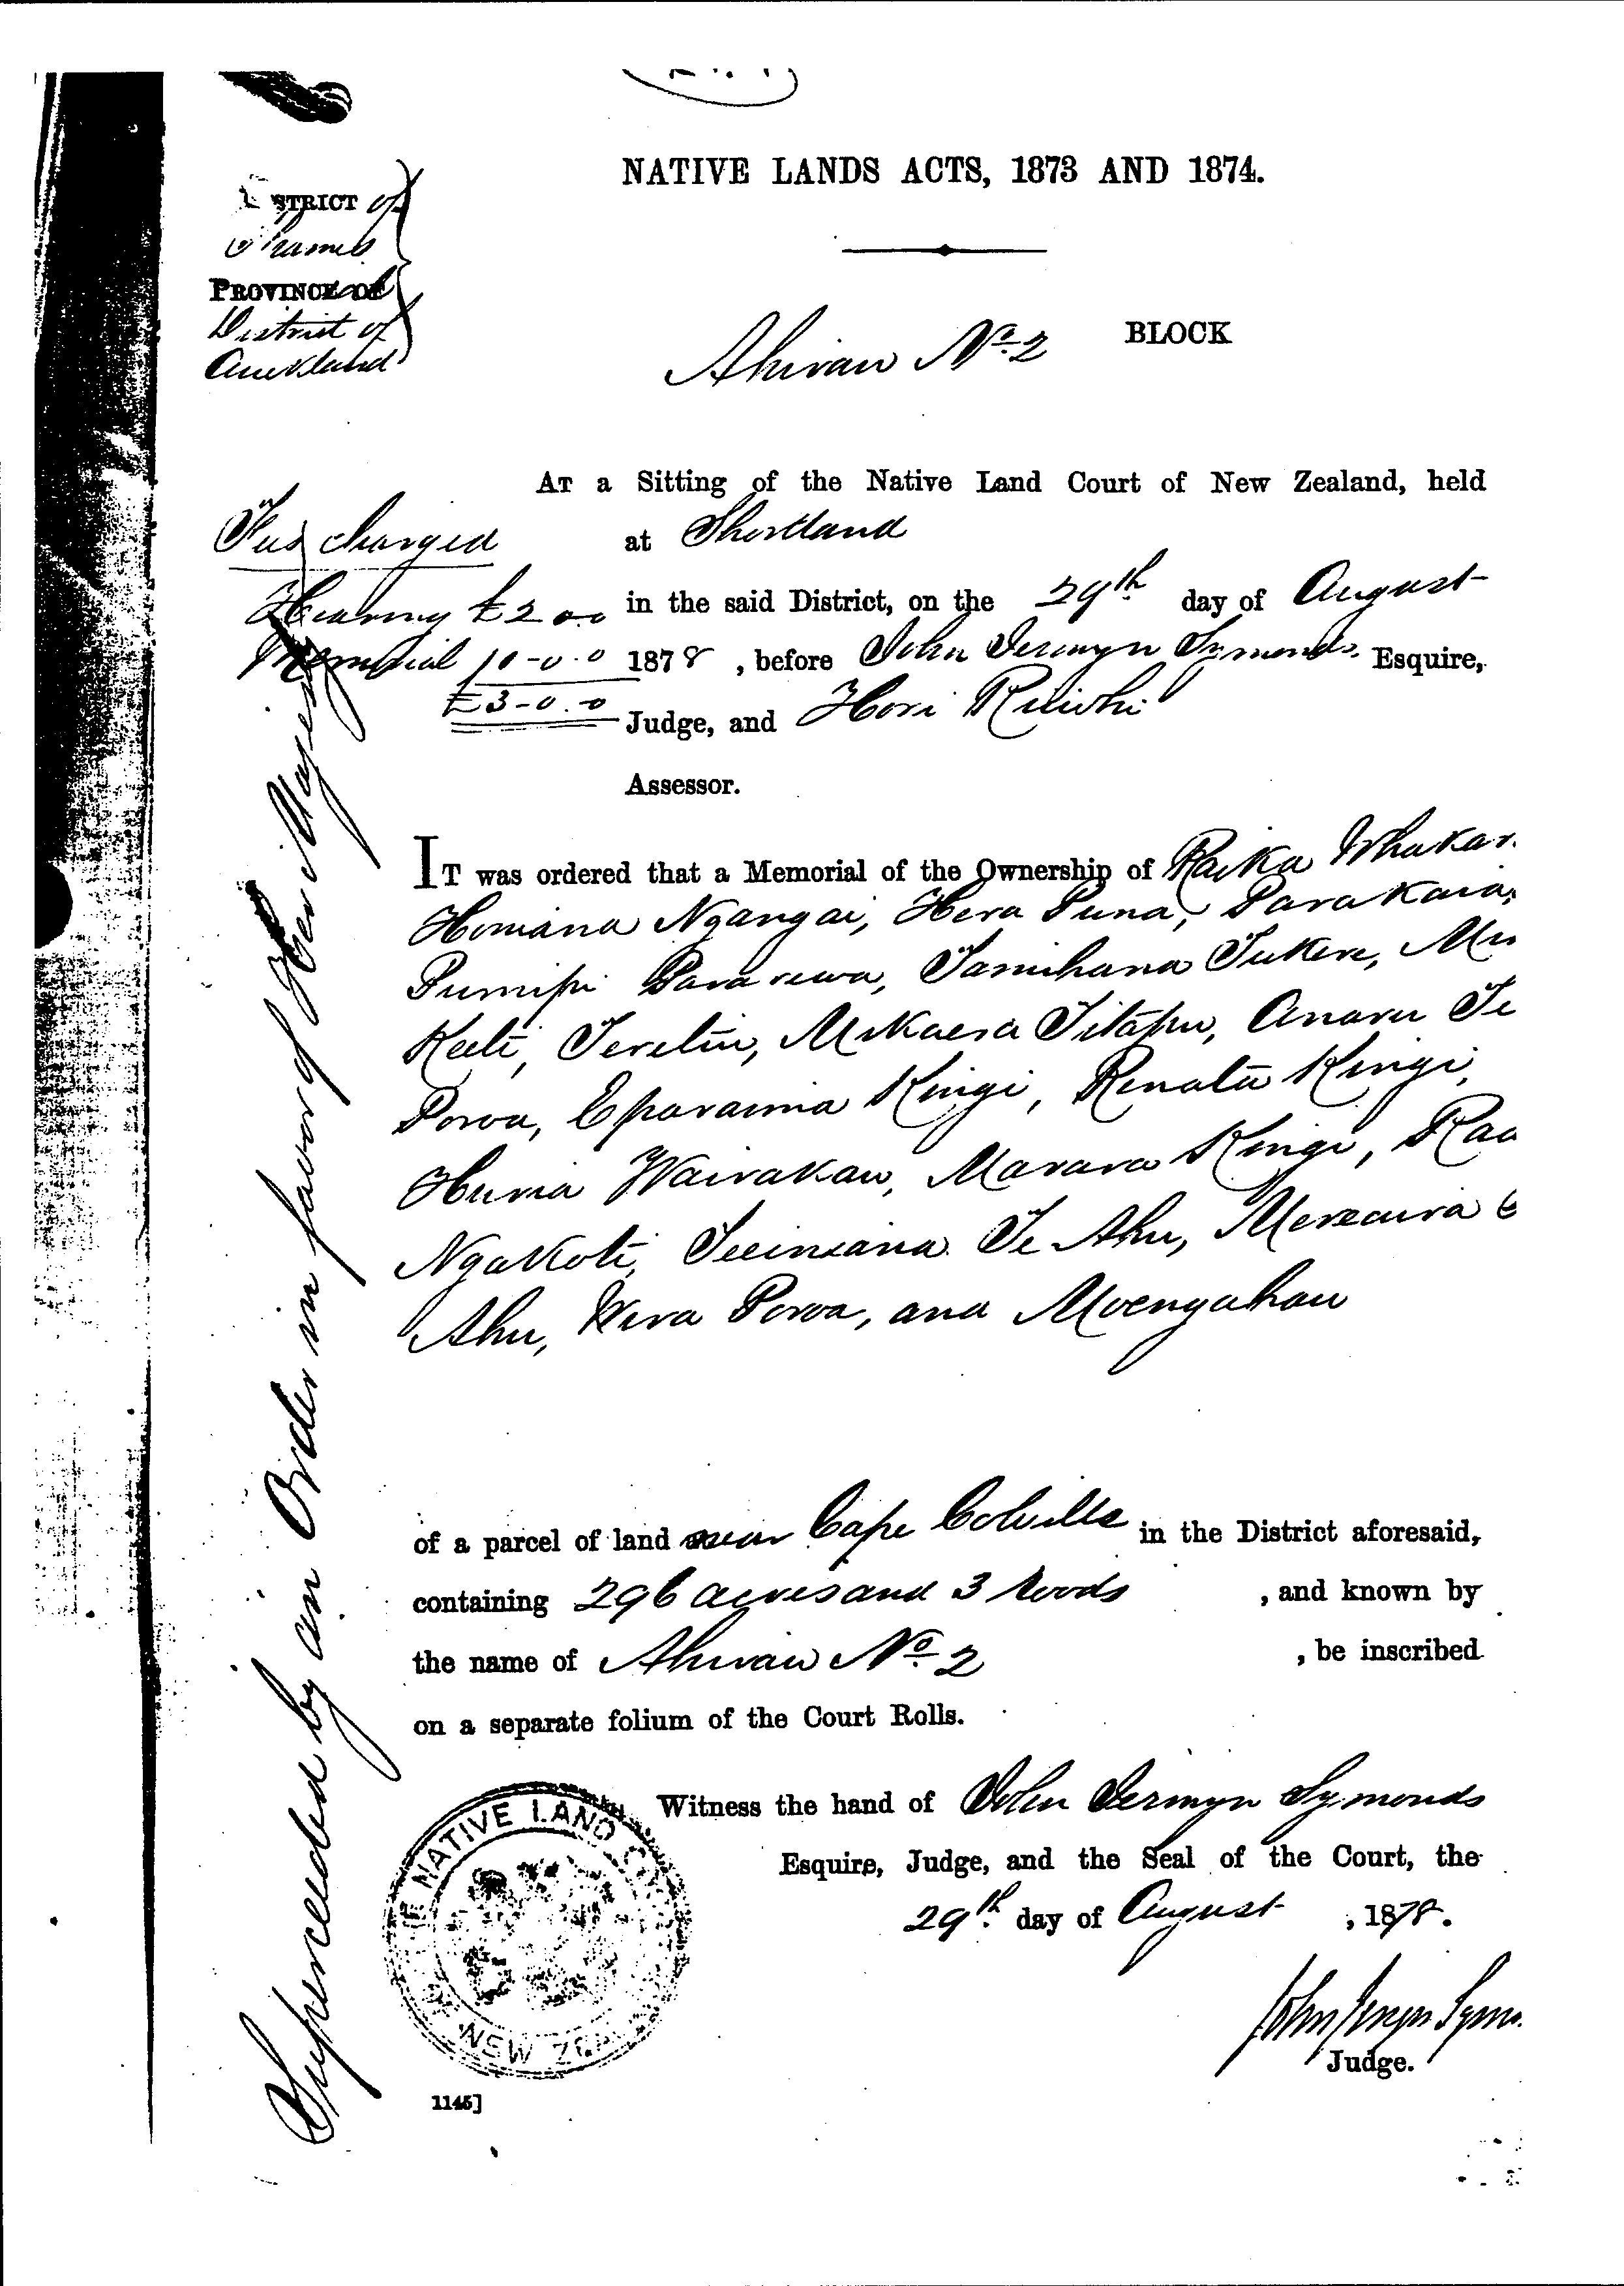 NATIVE LANDS ACTS, 1873 AND 1874.
STRICT of
Thames
PROVINCE OF
District of
Auckland
Ahirau No. 2 BLOCK
AT a Sitting of the Native Land Court of New Zealand, held
at Shortland
in the said District, on the 29th day of August
1878, before John Jermyn Symonds Esquire,
Judge, and Hori
Assessor.
Fees charged
Hearing £2
Memorial
£3-0-0
IT was ordered that a Memorial of the Ownership of Raika Whakar
Homana Ngangai, Hera Puna, Parakaia,
Pumipi Pararewa, Tamihana Tukere,
Keeti, Teretiu, Mikaera Titapu, Anaru Te
Poroa, Eparaima Kingi, Renata Kingi,
Huria Wairakau, Marara Kingi,
Ngakoti, Te Ahu,
Ahu, Wira Poroa, and Moengahau
of a parcel of land near Cape Colville in the District aforesaid,
containing 296 acres and 3 roods, and known by
the name of Ahirau No. 2, be inscribed
on a separate folium of the Court Rolls.
Witness the hand of John Jermyn Symonds
Esquire, Judge, and the Seal of the Court, the
29th day of August, 1878.
John Jermyn Symo
Judge.
NATIVE LAND
NEW ZEA
1145]
Superceeded by an Order in favor of Her Majesty